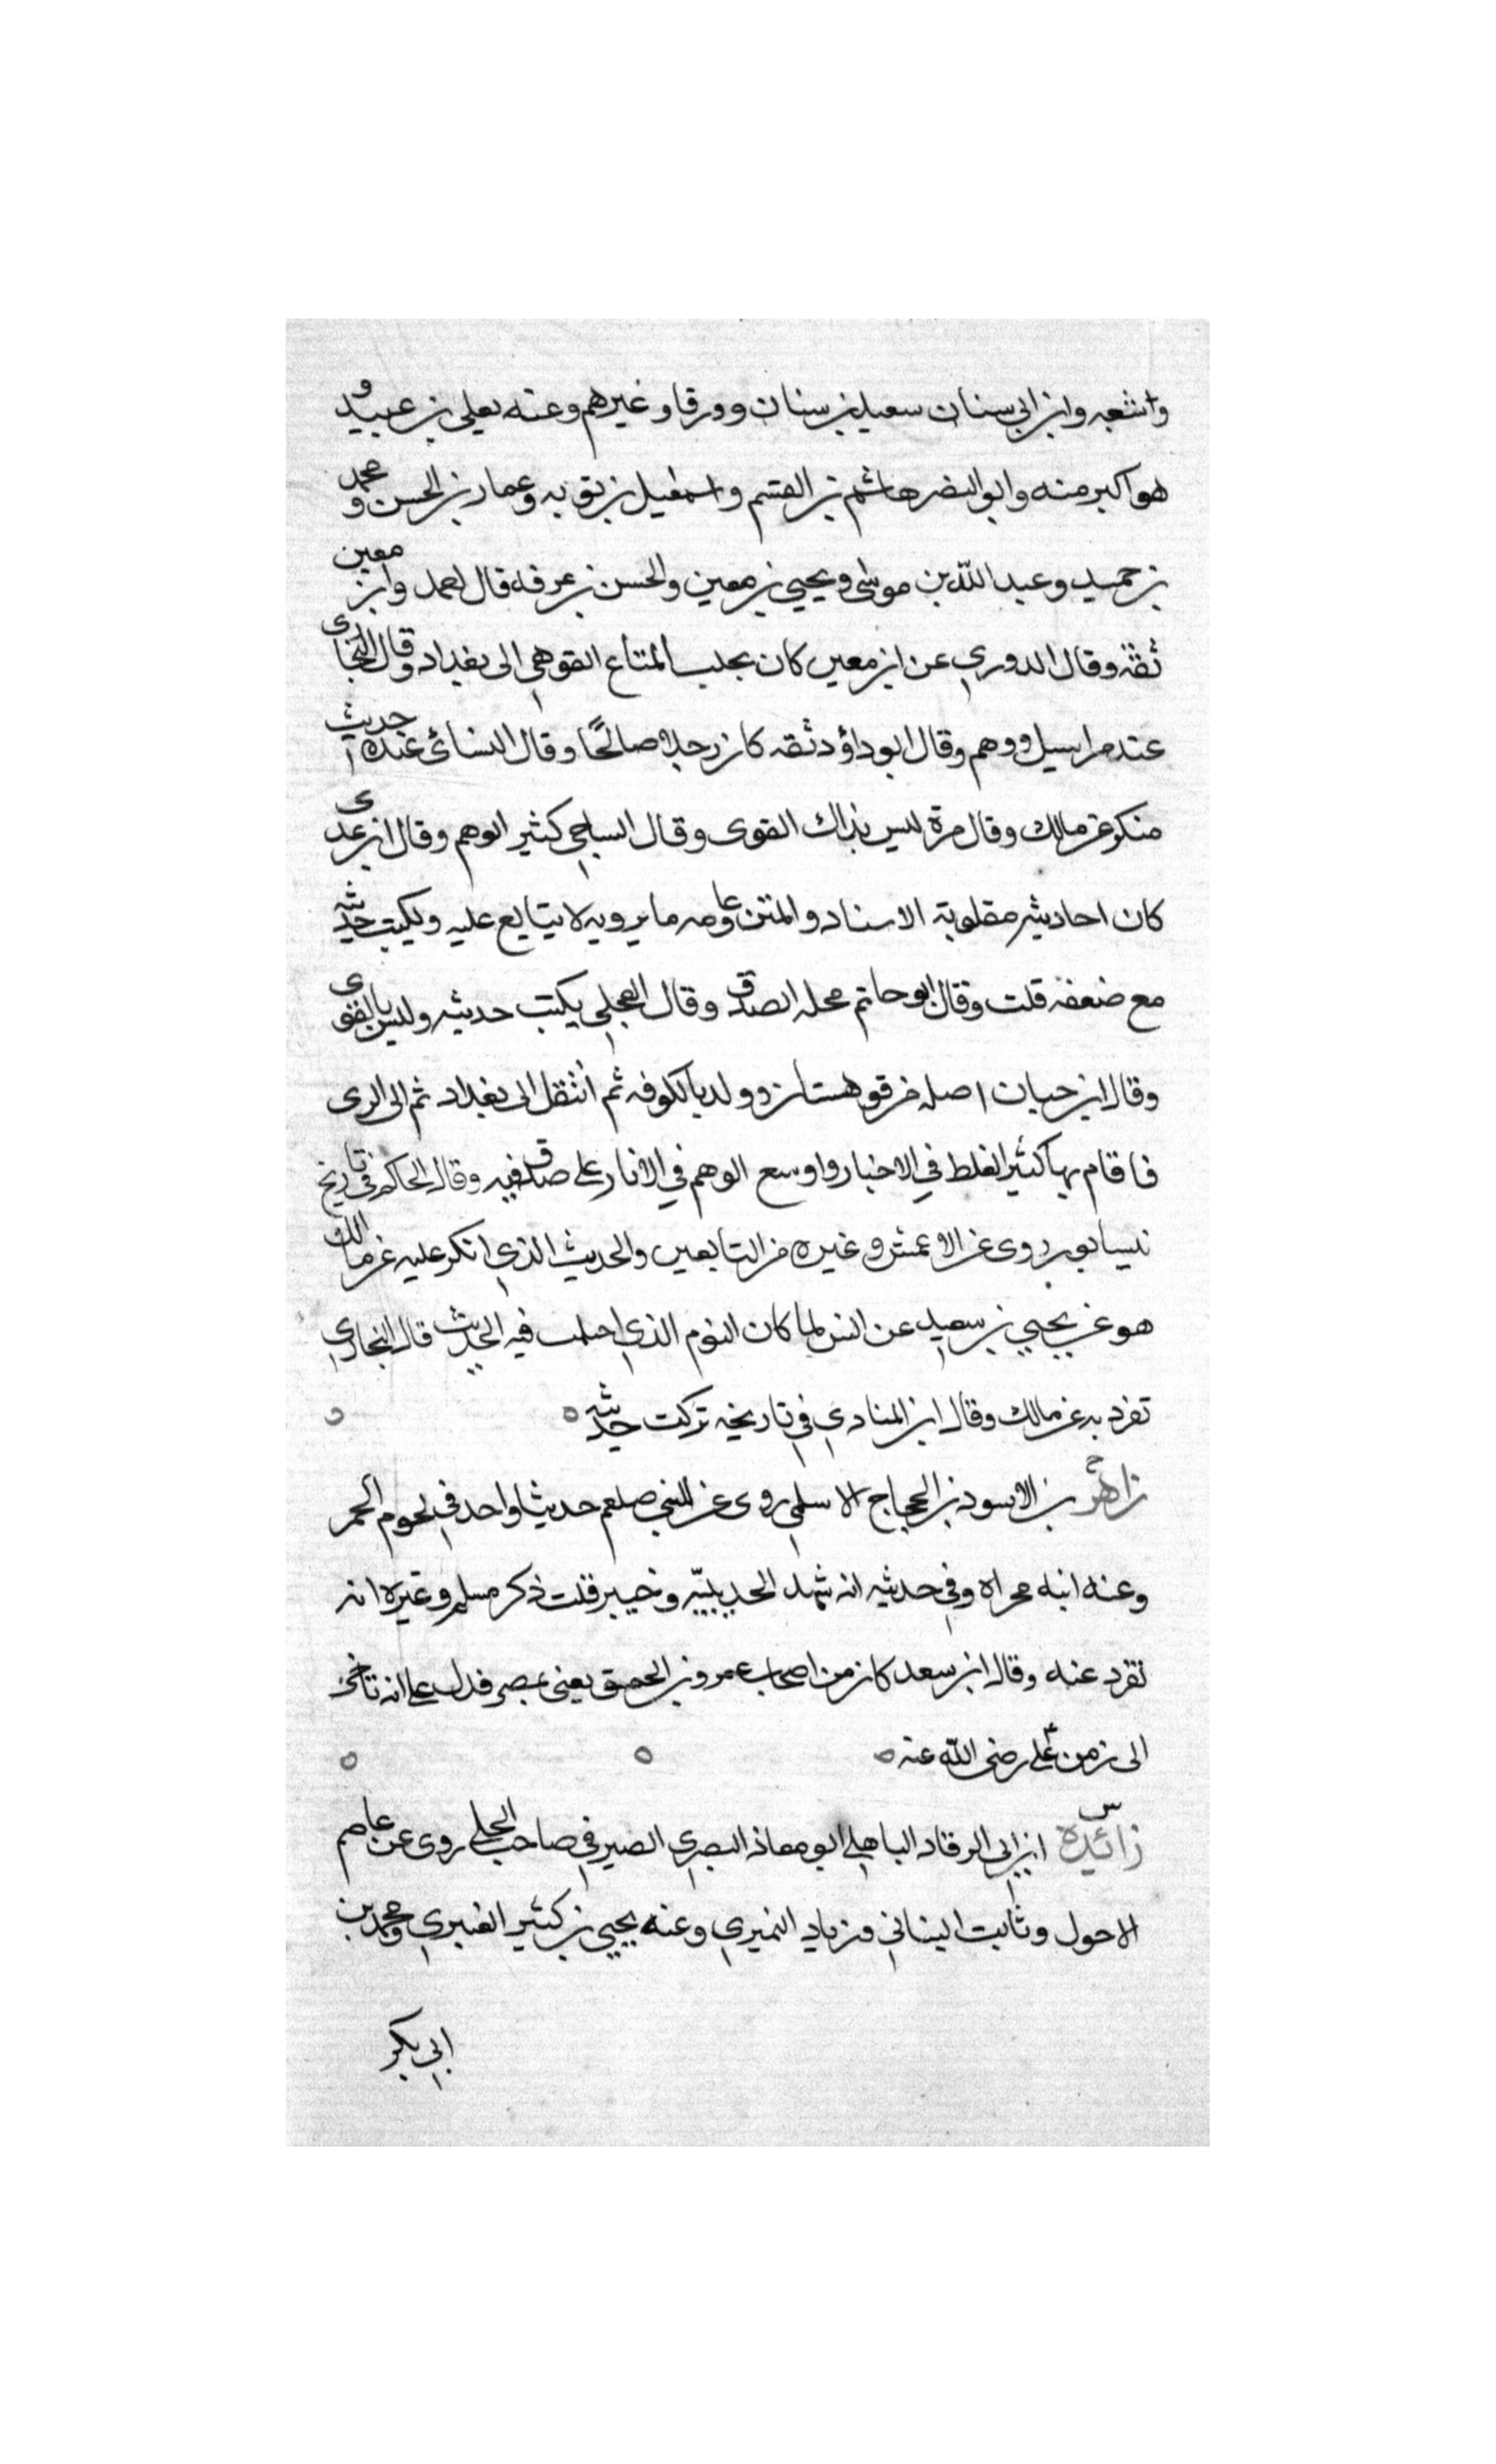 وشعبه وابن ابي سنان سعيد بن سنان وورقا وغيرهم وعنه يعلى بن عبيد و
هو اكبر منه وابو النضر هاشم بن القسم واسمعيل بن توبه وعمار بن الحسن ومحمد
بن حميد وعبد الله بن موسى ويحيي بن معين والحسن بن عرفه قال احمد وابن معين
ثقة وقال الدوري عن ابن معين كان يجلب المتاع القوهي الى بغداد وقال البخاري
عنده مراسيل ووهم وقال ابو داؤد ثقه كان رجلا صالحًا وقال النسائي عنده حديث
منكر عن مالك وقال مرة ليس بذاك القوى وقال الساجي كثير الوهم وقال ابن عدى
كان احاديثه مقلوبة الاسناد والمتن وعامه ما يرويه لا يتابع عليه ويكتب حديثه
مع ضعفه قلت وقال ابو حاتم محله الصدق وقال العجلي يكتب حديثه وليس بالقوى
وقال ابن حبان اصله من قوهستان وولد بالكوفه ثم انتقل الى بغداد ثم الى الرى
فاقام بها كثير الغلط في الاخبار واوسع الوهم في الاثار على صدق فيه وقال الحاكم في تاريخ
نيسابور روى عن الاعمش وغيره من التابعين والحديث الذي انكر عليه عن مالك
هو عن يحيي بن سعيد عن انس لما كان اليوم الذي احتلمت فيه الحديث قال البخاري
تفرد به عن مالك وقال ابن المنادي في تاريخه تركت حديثه
زاهر بن الاسود بن الحجاج الاسلمي روى عن النبي صلعم حديثا واحد في لحوم الحمر
وعنه ابنه مجراه وفي حديثه انه شهد الحديبيّه وخيبر قلت ذكر مسلم وغيره انه
تفرد عنه وقال ابن سعد كان من اصحاب عمرو بن الحمق يعنى بمصر فدل على انه تاخر
الى زمن علي رضى الله عنه
زائدة ابن ابي الرقاد الباهلي ابو معاذ البصري الصيرفي صاحب الحلي روى عن عاصم
الاحول وثابت البناني وزياد النميري وعنه يحيي بن كثير العنبري ومحمد بن
ابي بكر